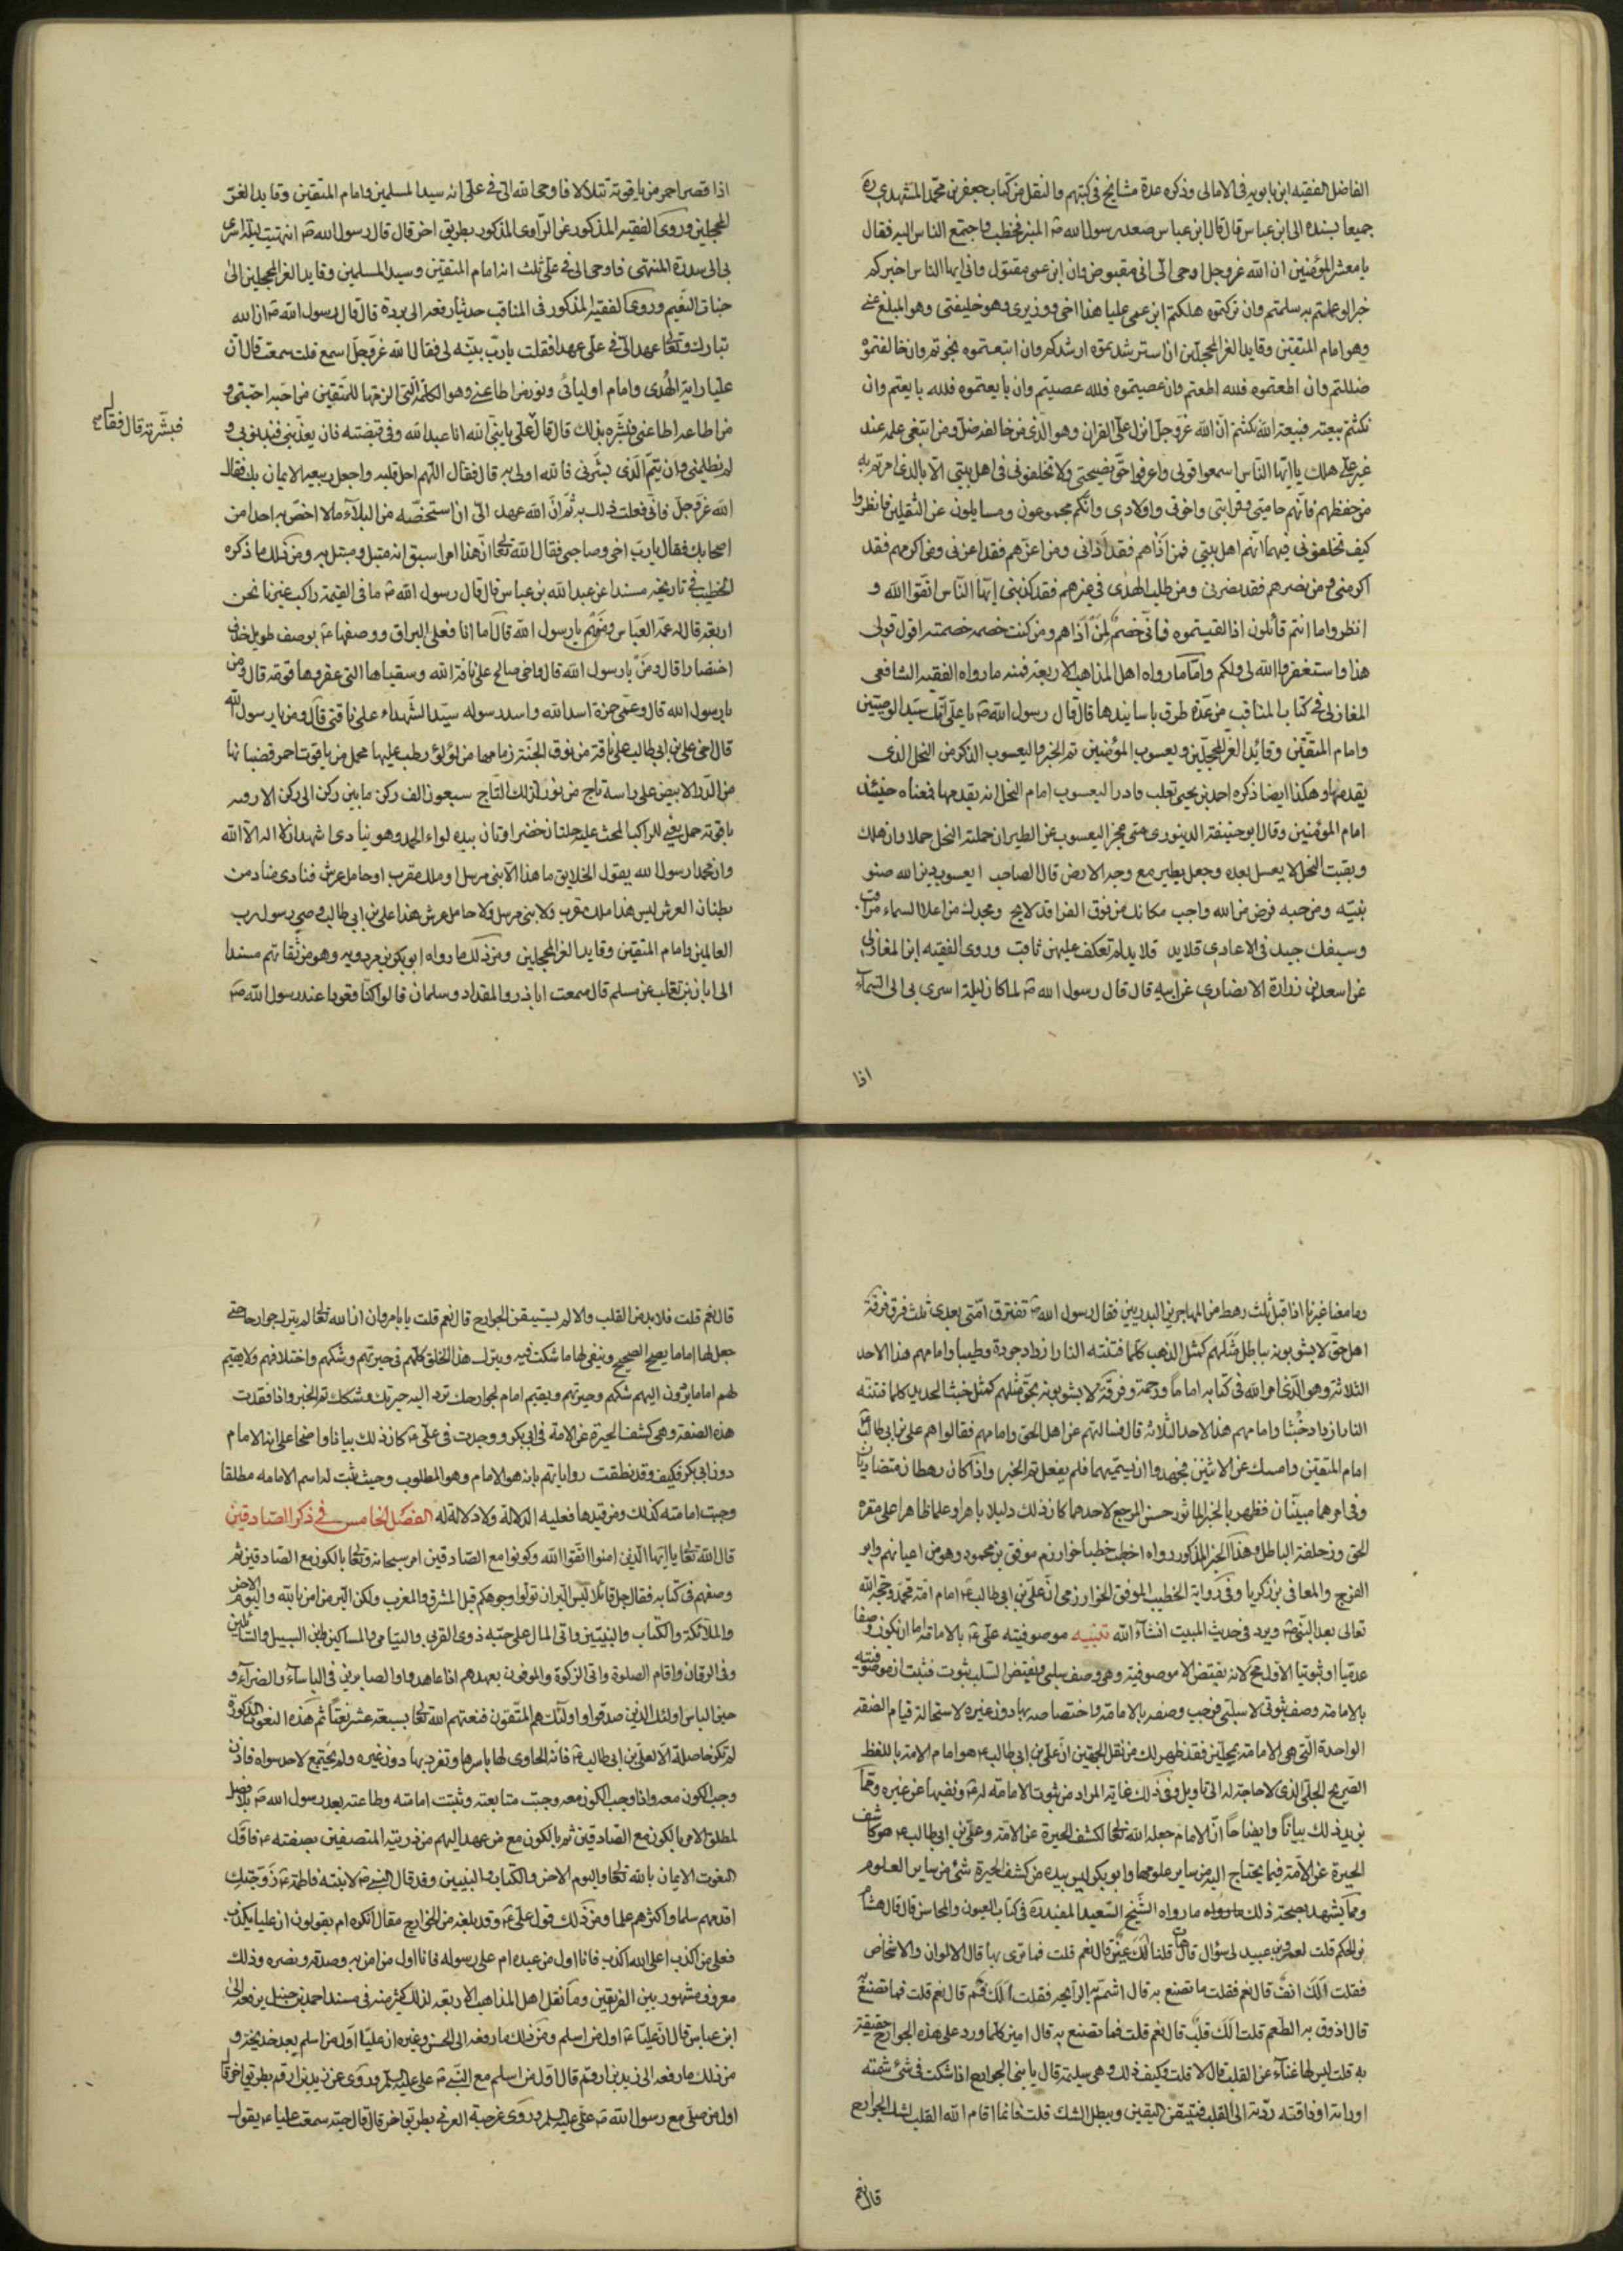 الفاضل الفقيه ابن بابويه فى الامالى وذكره عدة مشايخ فى كتبهم والنقل من كتاب جعفر بن محمد المشهدى ره
جميعا بسنده الى ابن عباس قال قال ابن عباس صعد رسول الله ص المنبر فخطب واجتمع الناس اليه فقال
يا معشر المؤمنين ان الله عز وجل اوحى الى انى مقبوض وان ابن عمى مقتول وانى ايها الناس اخبركم
خبرا لو عملتم به سلمتم وان تركتموه هلكتم ابن عمى عليا هذا اخى ووزيرى وهو خليفتى وهو المبلغ عنى
وهو امام المتقين وقايد الغر المحجلين ان استرشدتموه ارشدكم وان اتبعتموه نجوتم وان خالفتموه
ضللتم وان اطعتموه فلله اطعتم وان عصيتموه فلله عصيتم وان بايعتموه فلله بايعتم وان
نكثتم بيعته فبيعة الله نكثتم ان الله عز وجل انزل على القران وهو الذى من خالفه ضل ومن ابتغى علمه عند
غير على هلك يا ايها الناس اسمعوا قولى واعرفوا حق نصيحتى ولا تخلفونى فى اهل بيتى الا بالذى امرتم به
من حفظهم فانهم حامتى وقرابتى واخوتى واولادى وانكم مجموعون ومسايلون عن الثقلين فانظروا
كيف تخلفونى فيهما انهم اهل بيتى فمن اذاهم فقد اذانى ومن اعزهم فقد اعزنى ومن اكرمهم فقد
اكرمنى ومن نصرهم فقد نصرنى ومن طلب الهدى فى غيرهم فقد كذبنى ايها الناس اتقوا الله و
انظروا ما انتم قائلون اذا لقيتموه فانى خصم لمن اذاهم ومن كنت خصمه خصمته اقول قولى
هذا واستغفر الله لى ولكم واما ما رواه اهل المذاهب الاربعة فمنه ما رواه الفقيه الشافعى
المغازلى فى كتاب المناقب من عدة طرق باسانيدها قال قال رسول الله ص يا على انك سيد الوصيين
وامام المتقين وقائد الغر المحجلين ويعسوب المؤمنين تم الخبر واليعسوب الذكر من النحل الذى
يقدمها وهكذا ايضا ذكره احمد بن يحيى ثعلب اليعسوب امام النحل انه يقدمها فمعناه حينئذ
امام المؤمنين وقال ابو حنيفة الدينورى متى عجز اليعسوب عن الطيران حملته النحل حملا وان هلك
وبقيت النحل لا يعسل بعده وجعل يطير مع وجه الارض قال الصاحب ايعسوب دين الله صنو
نبيه ومن حبه فرض من الله واجب مكانك من فوق الفراقد لايح ومجدك من اعلا السماء مراقب
وسيفك جيد فى الاعادى قلايد قلايد لم تعكف عليهن ثاقب وروى الفقيه ابن المغازلى
عن اسعد بن زرارة الانصارى عن ابيه قال قال رسول الله ص لما كان ليلة اسرى بى الى السماء
اذا
اذا قصر احمر من ياقوتة تتلالا فاوحى الله الى فى على انه سيد المسلمين وامام المتقين وقايد الغر
المحجلين وروى الفقيه المذكور عن الراوى المذكور بطريق اخر قال قال رسول الله ص انتهيت ليلة اسرى
بى الى سدرة المنتهى فاوحى الى فى على ثلث انه امام المتقين وسيد المسلمين وقايد الغر المحجلين الى
جنات النعيم وروى الفقيه المذكور فى المناقب حديثا رفعه الى بردة قال قال رسول الله ص ان الله
تبارك وتعالى عهد الى فى على عهدا فقلت يا رب بينه لى فقال الله عز وجل اسمع قلت سمعت قال ان
عليا راية الهدى وامام اوليائى ونور من اطاعنى وهو الكلمة التى الزمتها للمتقين من احبه احبنى و
من اطاعه اطاعنى فبشره بذلك قال قال على يا نبى الله انا عبد الله وفى قبضته فان يعذبنى فبذنوبى و
لم يظلمنى وان يتم الذى بشرنى فالله اولى به قال فقال اللهم اجل قلبه واجعل ربيعه الايمان بك فقال
الله عز وجل فانى فعلت ذلك به ثم ان الله عهد الى ان استخصه من البلاء ما لا اخص به احدا من
اصحابك فقال يا رب اخى وصاحبى فقال الله تعالى ان هذا امر سبق انه مبتل ومبتلى به ومن ذلك ما ذكره
الخطيب فى تاريخه مسندا عن عبد الله بن عباس قال قال رسول الله ص ما فى القيمة راكب غيرنا نحن
اربعة قال له عمه العباس ومن هم يا رسول الله قال اما انا فعلى البراق ووصفها بوصف طويل
اختصارا قال ومن يا رسول الله قال واخى صالح على ناقة الله وسقياها التى عقرها قومه قال ومن
يا رسول الله قال وعمى حمزة اسد الله واسد رسوله سيد الشهداء على ناقتى قال ومن يا رسول الله
قال اخى على بن ابى طالب على ناقة من نوق الجنة زمامها من لؤلؤ رطب عليها محمل من ياقوت احمر قضبانها
من الدر الابيض على راسه تاج من نور لذلك التاج سبعون الف ركن ما بين ركن الى ركن الا وفيه
ياقوتة حمرا تضى للراكب المحث عليه حلتان خضراوتان بيده لواء الحمد وهو ينادى اشهد ان لا اله الا الله
وان محمدا رسول الله يقول الخلايق ما هذا الا نبى مرسل او ملك مقرب او حامل عرش فنادى مناد من
بطنان العرش ليس هذا ملك مقرب ولا نبى مرسل ولا حامل عرش هذا على بن ابى طالب وصى رسول رب
العالمين وامام المتقين وقايد الغر المحجلين ومن ذلك ما رواه ابو بكر بن مردويه وهو من ثقاتهم مسندا
الى ابان بن تغلب عن مسلم قال سمعت اباذر والمقداد وسلمان قالوا كنا قعودا عند رسول الله ص
فبشرته قال فقال
وما معنا غيرنا اذا قبل ثلث رهط من المهاجرين البدريين فقال رسول الله ص تفترق امتى بعدى ثلث فرق فرقة
اهل حق لا يشوبونه بباطل مثلهم كمثل الذهب كلما فتنته النار ازداد جودة وطيبا وامامهم هذا لاحد
الثلاثة وهو الذى امر الله فى كتابه اماما ورحمة وفرقة لا يشوبونه بحق مثلهم كمثل خبث الحديد كلما فتنته
النار ازداد خبثا وامامهم هذا لاحد الثلاثة قال فسالتهم عن اهل الحق وامامهم فقالوا هم على بن ابى طالب
امام المتقين وامسك عن الاثنين فجهدوا ان يسميهما فلم يفعل تم الخبر واذا كان رهطان متضادان
وفى امرهما مبينان فظهر بالخبر الماثور حسن المرجع لاحدهما كان ذلك دليلا باهرا وعلما ظاهرا على مقره
الحق وزحلفة الباطل وهذا الخبر المذكور رواه اخطب خطباء خوارزم موفق بن محمود وهو من اعيانهم وابو
الفرج والمعافى بن زكريا وفى رواية الخطيب الموفق الخوارزمى ان على بن ابى طالب امام امة محمد وحجة الله
تعالى بعد النبى ص ويرد فى حديث المبيت انشاء الله تنبيه موصوفيته على ع بالامامة اما ان يكون وصفا
عدميا او ثبوتيا الاول مح لانه يقتضى الاموصوفية وهى وصف سلبى ونقيض السلب ثبوت فثبت ان موصوفيته
بالامامة وصف ثبوتى لا سلبى فوجب وصفه بالامامة واختصاصه بها دون غيره لاستحالة قيام الصفة
الواحدة التى هى الامامة بمحلين فقد ظهر لك من نقل الجهتين ان على بن ابى طالب ع هو امام الامة باللفظ
الصريح الجلى الذى لا حاجة له الى تاويل وفى ذلك غاية المراد من ثبوت الامامة له ع ونفيها عن غيره ومما
يزيد ذلك بيانا وايضاحا ان الامام جعله الله تعالى لكشف الحيرة عن الامة وعلى بن ابى طالب ع هو كاشف
الحيرة عن الامة فيما يحتاج اليه من ساير علومها وابو بكر ليس بيده من كشف الحيرة شئ من ساير العلوم
ومما يشهد بصحة ذلك ما رواه الشيخ السعيد المفيد ره فى كتاب العيون والمحاسن قال قال هشام
بن الحكم قلت لعمرو بن عبيد لى سؤال قال هات قلنا الك عين قال نعم قلت فما ترى بها قال الالوان والاشخاص
فقلت الك انف قال نعم فقلت ما تصنع به قال اشتم به الرايحه فقلت الك فم قال نعم قلت فما تصنع
قال اذوق به الطعم قلت الك قلب قال نعم قلت فما تصنع به قال اميز كلما ورد على هذه الجوارح حقيقة
به قلت ليس لها غناء عن القلب قال لا قلت وكيف ذلك وهى سليمة قال يا بنى الجوارح اذا شكت فى شئ شمته
او راته او ذاقته ردته الى القلب فتيقن اليقين ويبطل الشك قلت فانما اقام الله القلب لشك الجوارح
قال نعم
قال نعم قلت فلا بد من القلب والا لم يستيقن الجوارح قال نعم قلت يا با مروان ان الله تعالى لم يترك جوارحك حتى
جعل لها اماما يصح الصحيح وينفى لها ما شكت فيه ويترك هذا الخلق كلهم فى حيرتهم وشكهم واختلافهم ولا يقيم
لهم اماما يردون اليهم شكهم وحيرتهم ويقيم امام لجوارحك ترد اليه حيرتك وشكك تم الخبر واذا فقدت
هذه الصفة وهى كشف الحيرة عن الامة فى ابى بكر ووجدت فى على ع كان ذلك بيانا واضحا على انه الامام
دون ابى بكر فكيف وقد نطقت رواياتهم بانه هو الامام وهو المطلوب وحيث ثبت له اسم الامامه مطلقا
وجبت امامته كذلك ومن قيدها فعليه الدلالة ولا دلالة له الفصل الخامس فى ذكر الصادقين
قال الله تعالى يا ايها الذين امنوا اتقوا الله وكونوا مع الصادقين امر سبحانه وتعالى بالكون مع الصادقين ثم
وصفهم فى كتابه فقال جل قائلا ليس البر ان تولوا وجوهكم قبل المشرق والمغرب ولكن البر من امن بالله واليوم الاخر
والملائكة والكتاب والنبيين واتى المال على حبه ذوى القربى واليتامى والمساكين وابن السبيل والسائلين
وفى الرقاب واقام الصلوة واتى الزكوة والموفون بعهدهم اذا عاهدوا والصابرين فى الباساء والضراء و
حين الباس اولئك الذين صدقوا واولئك هم المتقون فنعتهم الله تعالى بسبعة عشر نعتا ثم هذه النعوت المذكورة
لم تكن حاصلة الا لعلى بن ابى طالب ع فانه الحاوى لها باسرها وتفرد بها دون غيره ولم يجتمع لاحد سواه فاذن
وجب الكون معه واذا وجب الكون معه وجبت متابعته وثبتت امامته وطاعته بعد رسول الله ص بلا فصل
لمطلق الامر بالكون مع الصادقين ثم بالكون مع من عهد اليهم من ذريته المتصفين بصفته ع فاول
النعوت الايمان بالله تعالى واليوم الاخر والكتاب والنبيين وقد قال النبى ص لابنته فاطمة ع زوجتك
اقدمهم سلما واكثرهم علما ومن ذلك قول على ع وقد بلغه من الخوارج مقال انكره ام يقولون ان عليا يكذب
فعلى من اكذب اعلى الله اكذب فانا اول من عبده ام على رسوله فانا اول من امن به وصدقه ونصره وذلك
معروف مشهور بين الفريقين ومما نقل اهل المذاهب الاربعة لذلك كثير منه فى مسند احمد بن حنبل يرفعه الى
ابن عباس قال ان عليا ع اول من اسلم ومن ذلك ما رفعه الى الحسن وغيره ان عليا اول من اسلم بعد خديجة و
من ذلك ما رفعه الى زيد بن ارقم قال اول من اسلم مع النبى ص على عليه السلم وروى عن زيد بن ارقم بطريق اخر قال
اول من صلى مع رسول الله ص على عليه السلم وروى عن حبة العرنى بطريق اخر قال قال حبة سمعت عليا ع يقول